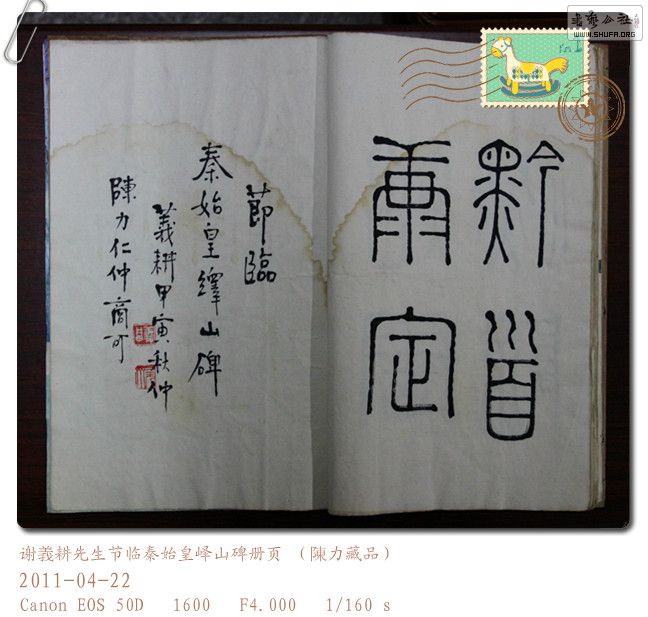 書藝公社
WWW.SHUFA.ORG
黔首
康定
節臨
秦始皇繹山碑
義耕甲寅秋仲
陳力仁仲商可
谢義耕先生节临秦始皇峄山碑册页 （陳力藏品）
2011-04-22
Canon EOS 50D 1600 F4.000 1/160 s